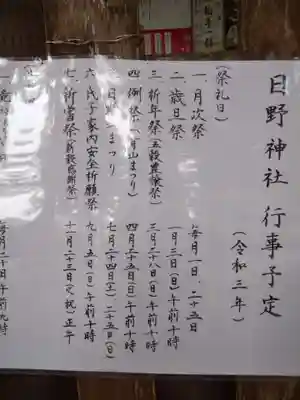 日野神社 行事予定
(令和三年)
(祭礼日)
一 月次祭 毎月一日、二十五日
二 歳旦祭 一月三日(日)午前十時
三 祈年祭(五穀豊穣祭) 三月二十八日(日)午前十時
四 例祭(月山まつり) 四月二十五日(日)午前十時
まつり 七月二十四(土)二十五日(日)
六 氏子家内安全祈願祭 九月五日(日)午前十時
七 新嘗祭(新穀感謝祭) 十一月二十三日(火、祝)正午
毎月二十日午前九時